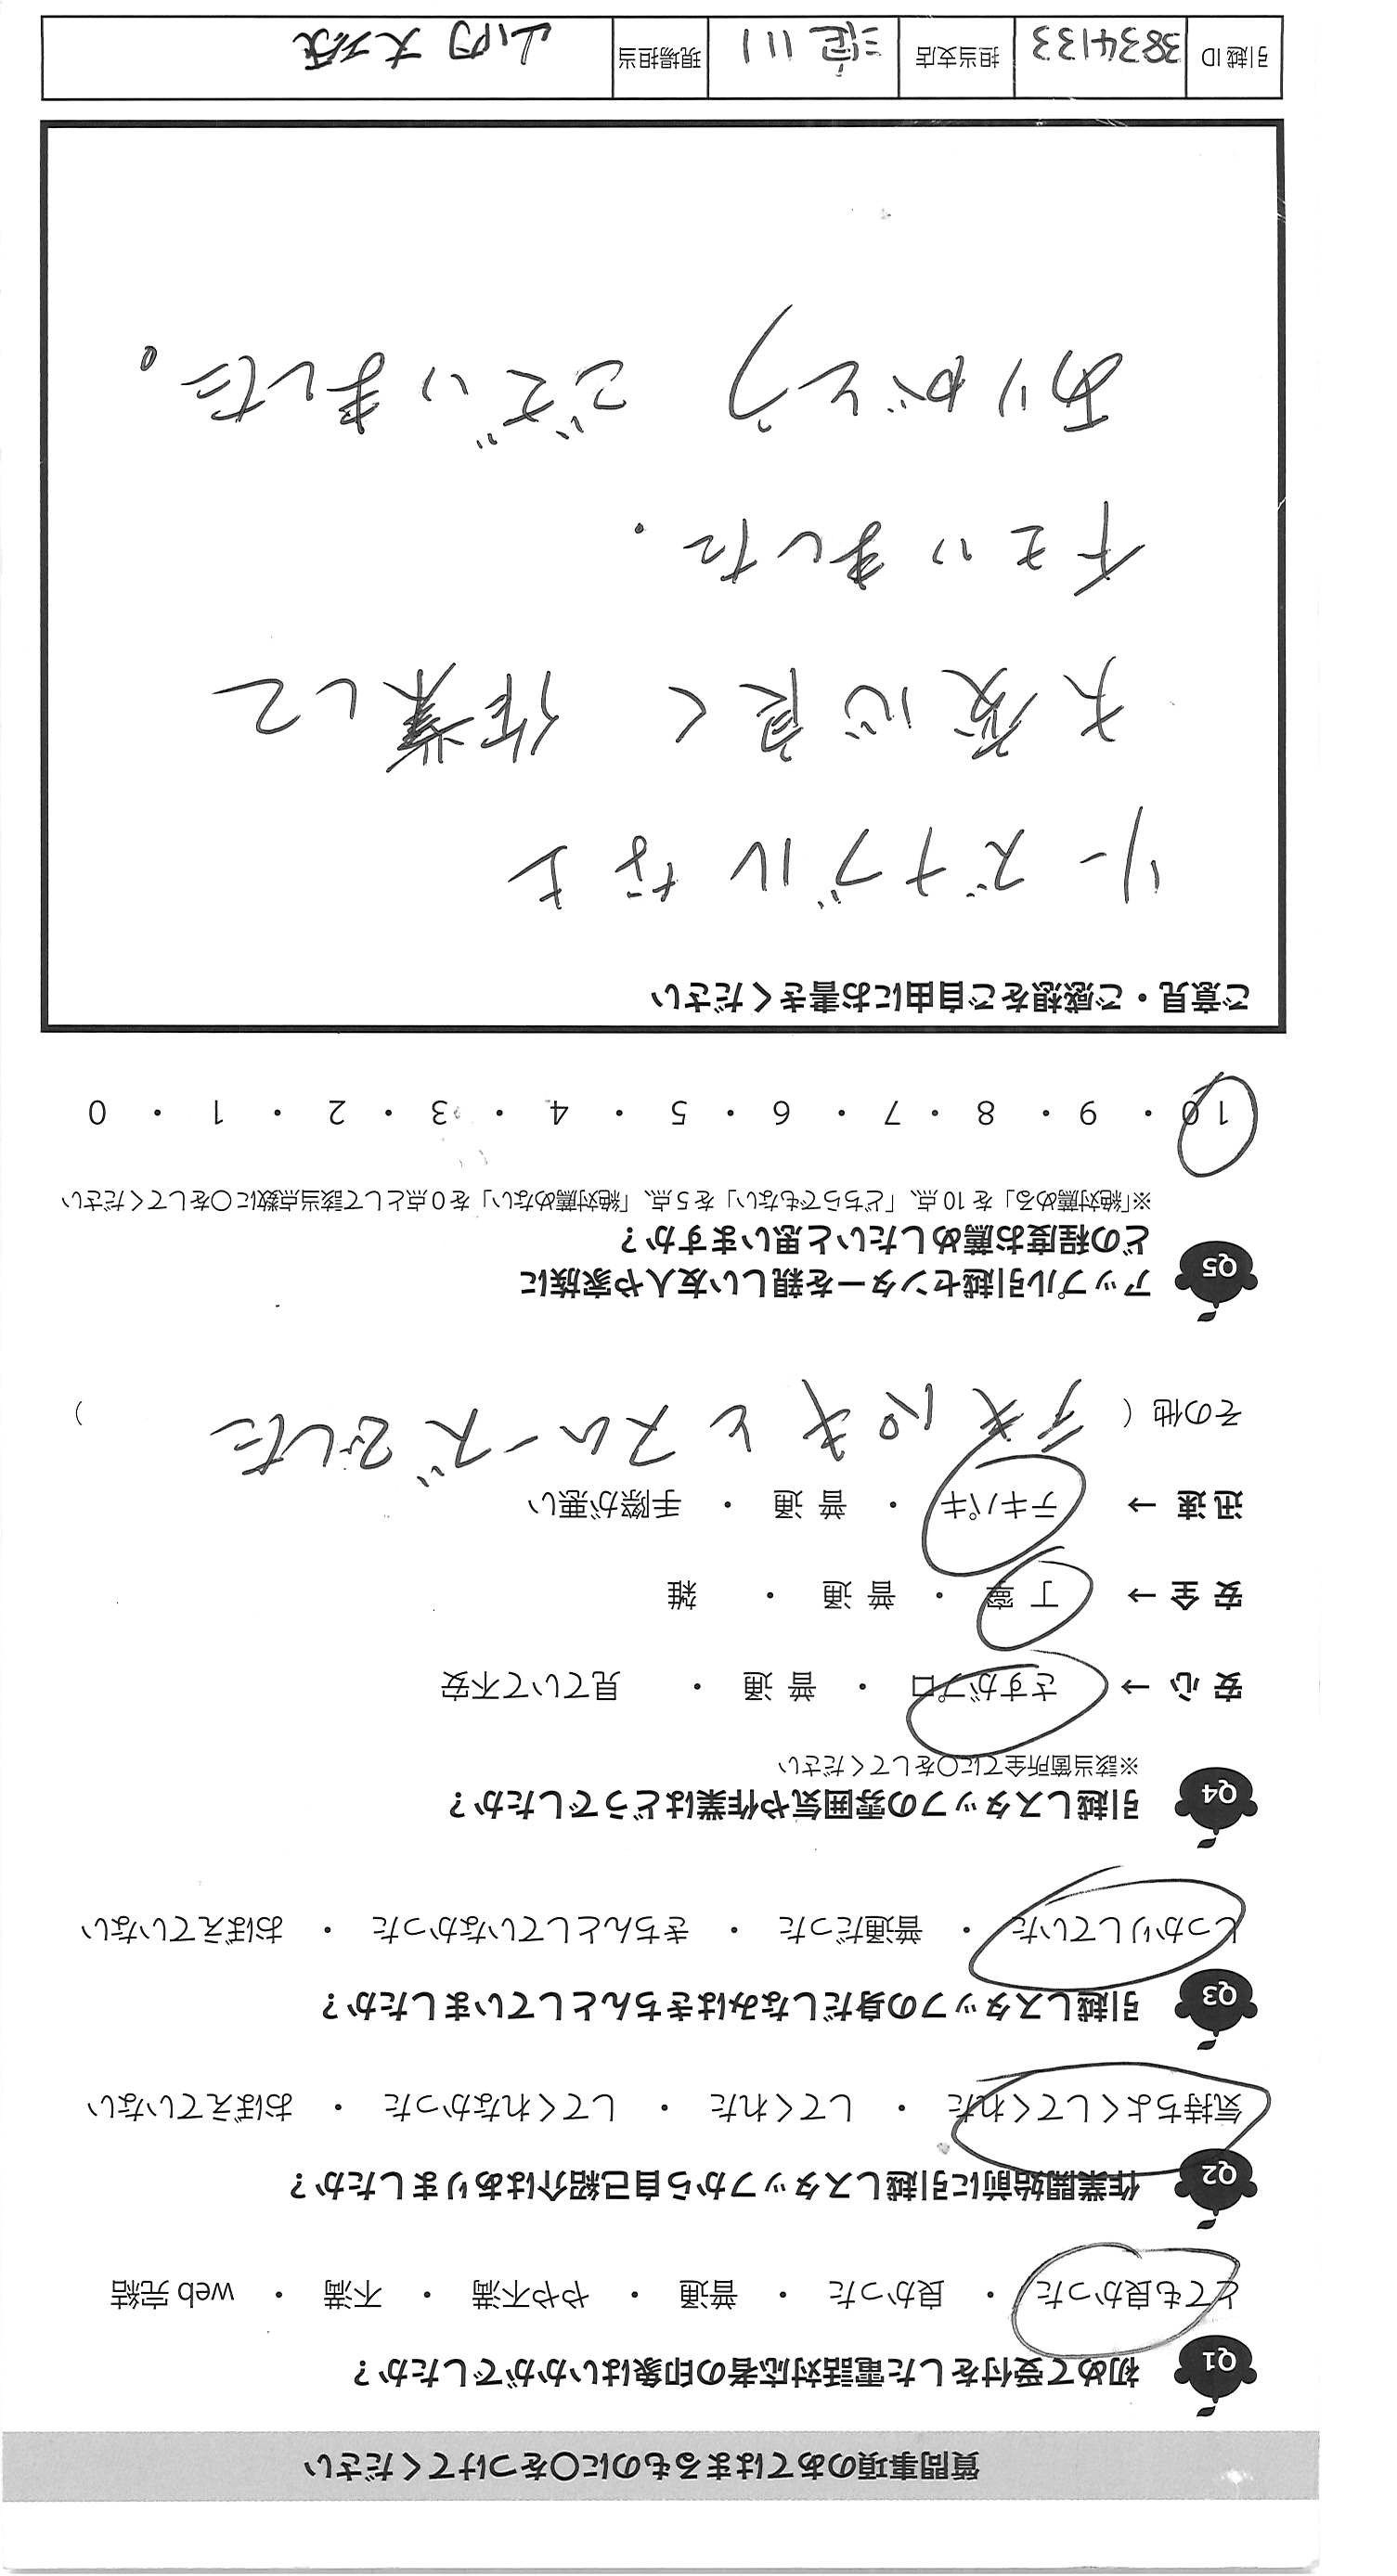 質問事項のあてはまるものに〇をつけてください
Q1 初めて受付をした電話対応者の印象はいかがでしたか？
とても良かった ・ 良かった ・ 普通 ・ やや不満 ・ 不満 ・ web 完結
Q2 作業開始前に引越しスタッフから自己紹介はありましたか？
気持ちよくしてくれた ・ してくれた ・ してくれなかった ・ おぼえていない
Q3 引越しスタッフの身だしなみはきちんとしていましたか？
しっかりしていた ・ 普通だった ・ きちんとしていなかった ・ おぼえていない
Q4 引越しスタッフの雰囲気や作業はどうでしたか？
※該当箇所全てに〇をしてください
安 心 → さすがプロ ・ 普 通 ・ 見ていて不安
安 全 → 丁 寧 ・ 普 通 ・ 雑
迅 速 → テキパキ ・ 普 通 ・ 手際が悪い
その他（ テキパキとスムーズでした ）
Q5 アップル引越センターを親しい友人や家族に
どの程度お薦めしたいと思いますか？
※「絶対薦める」を 10 点、「どちらでもない」を 5 点、「絶対薦めない」を 0 点として該当点数に〇をしてください
10 ・ 9 ・ 8 ・ 7 ・ 6 ・ 5 ・ 4 ・ 3 ・ 2 ・ 1 ・ 0
ご意見・ご感想をご自由にお書きください
リーズナブルな上
大変心良く 作業して
下さいました.
ありがとう ございました。
引越 ID 3834133 担当支店 淀川 現場担当 山内